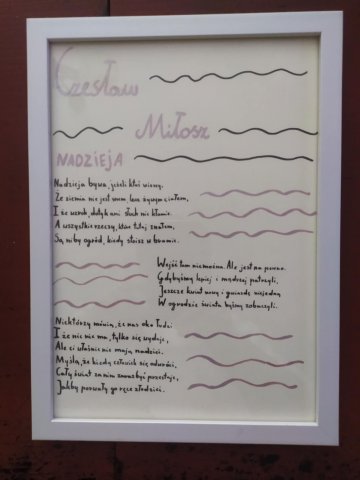 Czesław
Miłosz
NADZIEJA
Nadzieja bywa, jeżeli ktoś wierzy,
Że ziemia nie jest snem, lecz żywym ciałem,
I że wzrok, dotyk ani słuch nie kłamie.
A wszystkie rzeczy, które tutaj znałem,
Są niby ogród, kiedy stoisz w bramie.
Wejść tam nie można. Ale jest na pewno.
Gdybyśmy lepiej i mądrzej patrzyli,
Jeszcze kwiat nowy i gwiazdę niejedną
W ogrodzie świata byśmy zobaczyli.
Niektórzy mówią, że nas oko łudzi
I że nic nie ma, tylko się wydaje,
Ale ci właśnie nie mają nadziei.
Myślą, że kiedy człowiek się odwróci,
Cały świat za nim zaraz być przestaje,
Jakby porwały go ręce złodziei.